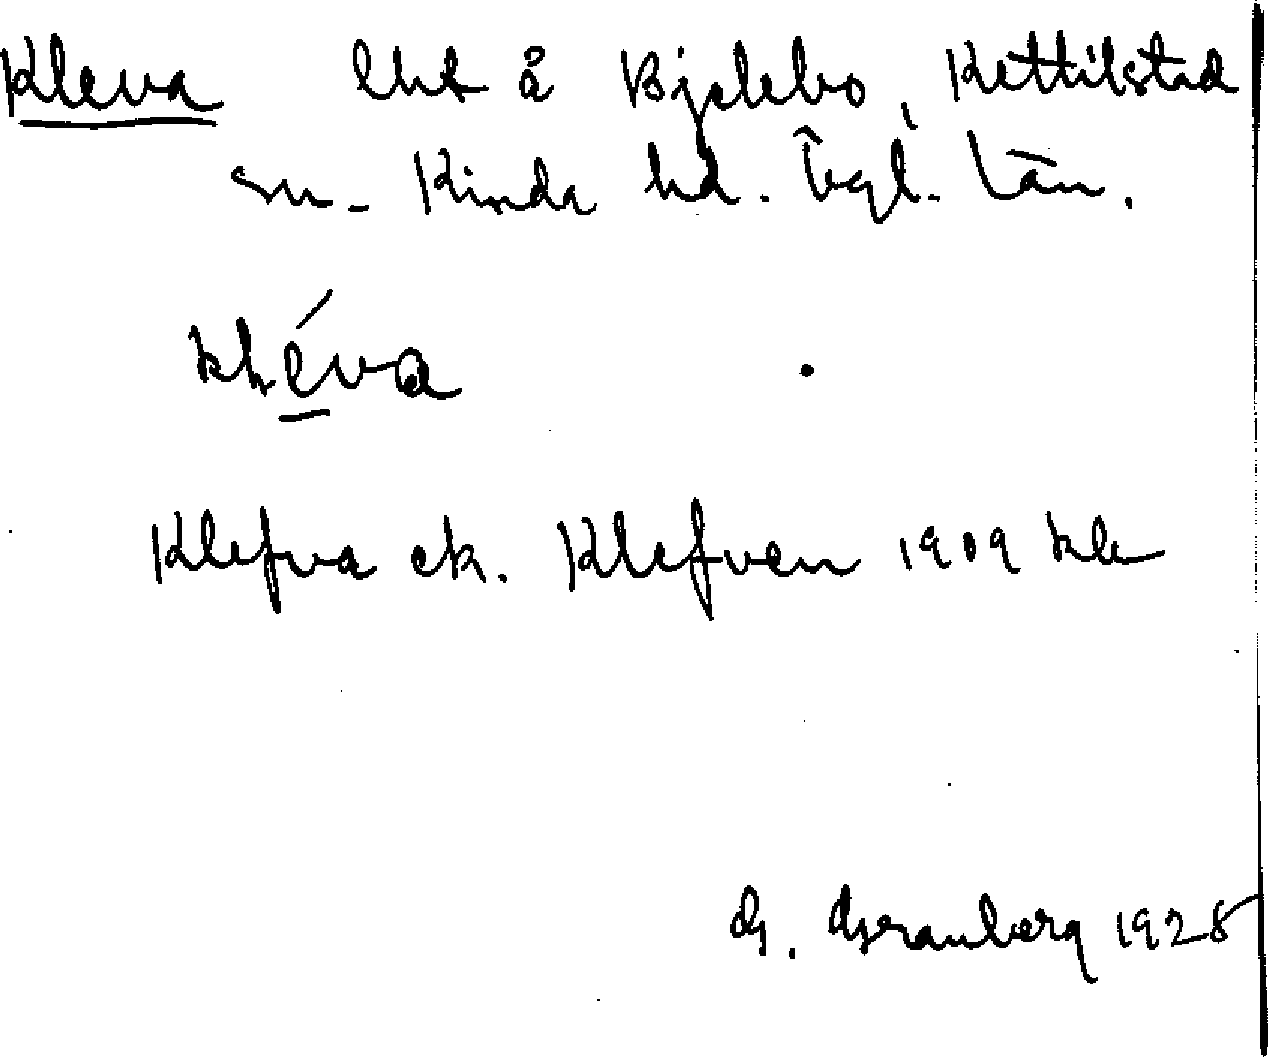 Kleva lht å Bjelebo, Kettilstad
sn. Kinda hd. Ögl. län.
kléva
Klefva ek. Klefven 1909 kle
G. Granberg 1928